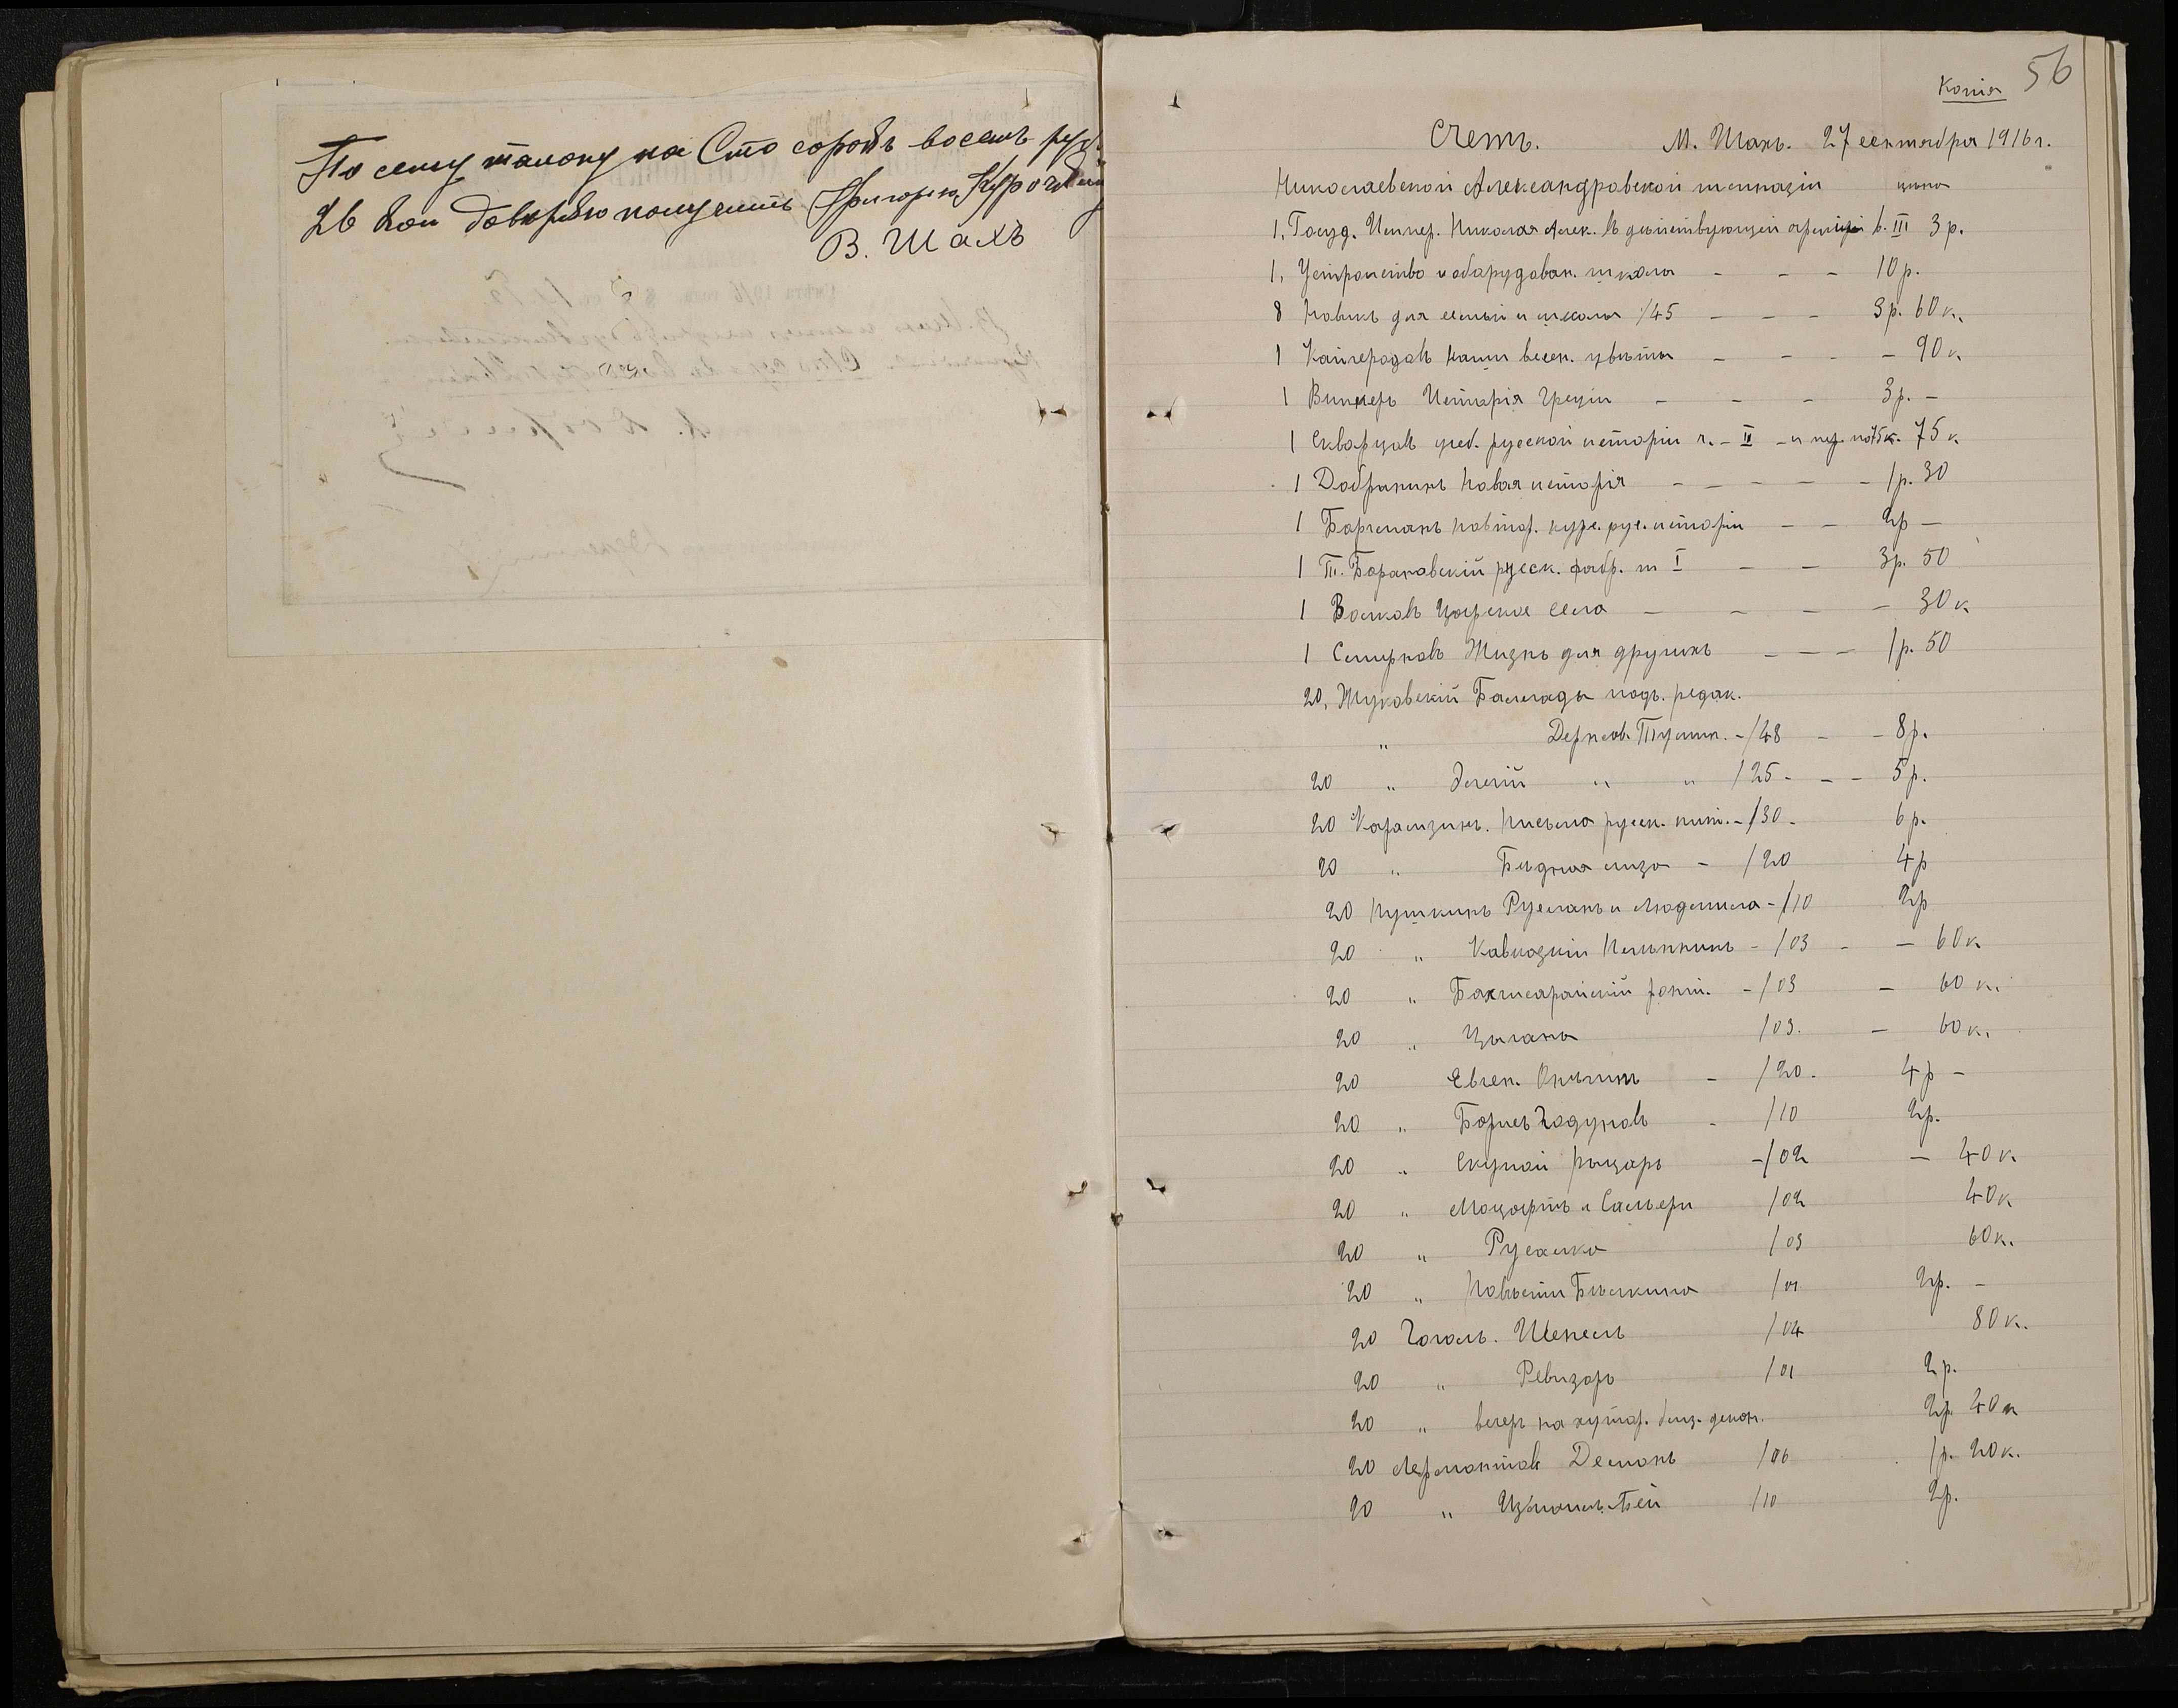 По сему талону на Сто сорокъ восемь руб.
26 коп довѣряю получить Григорію
В. Шахъ
56
Копія
Счетъ. М. Шахъ. 27 сентября 1916 г.
Николаевской Александровской гимназіи цѣна
1. Госуд. Импер. Николая Алек. въ дѣйствующей арміи в. III 3 р.
1. Устройство и оборудован. школы - - - 10 р.
8 Новикъ для семьи и школы /45 - - - 3 р. 60 к.
1 Кайгородовъ наши весен. цвѣты - - - - 90 к.
1 Випперъ Исторія Греціи - - - 3 р. -
1 Скворцовъ учеб. русской исторіи ч. - II - 75 к. 75 к
1 Добрынинъ Новая исторія - - - - - 1 р. 30
1 повтор. курс. рус. исторіи - - 2 р -
1 Т. Барановскій русск. фабр. т I - - 3 р. 50
1 Волковъ Царское село - - - - 30 к
1 Смирновъ Жизнь для другихъ - - - 1 р. 50
20, Жуковскій Баллады подъ. редак.
" - /48 - - 8 р.
20 " Элегіи " " /25 - - - 5 р.
20 Карамзинъ. Письма русск. пут. - /30 - 6 р.
20 " Бѣдная лиза - /20 4 р
20 Пушкинъ Русланъ и Людмила - /10 2 р
20 " Кавказкій Плѣнникъ - /03 - - 60 к
20 " Бахчисарайскій фонт. - /03 - 60 к.
20 " Цыганы /03. - 60 к.
20 Евген. Онѣгинъ - /20. 4 р -
20 " Борисъ Годуновъ - /10 2 р.
20 " Скупой рыцарь - /02 - 40 к
20 " Моцартъ и Сальери /02 40 к
20 " Русалка /03 60 к.
20 " Повѣсти Бѣлкина /01 2 р. -
20 Гоголь. Шенель /04 80 к.
20 " Ревизоръ /01 2 р.
20 " вечеръ на хутор. близ. дикан. 2 р. 40 к
20 Лермонтовъ Демонъ /06 1 р. 20 к.
20 " Измаилъ-Бей /10 2 р.